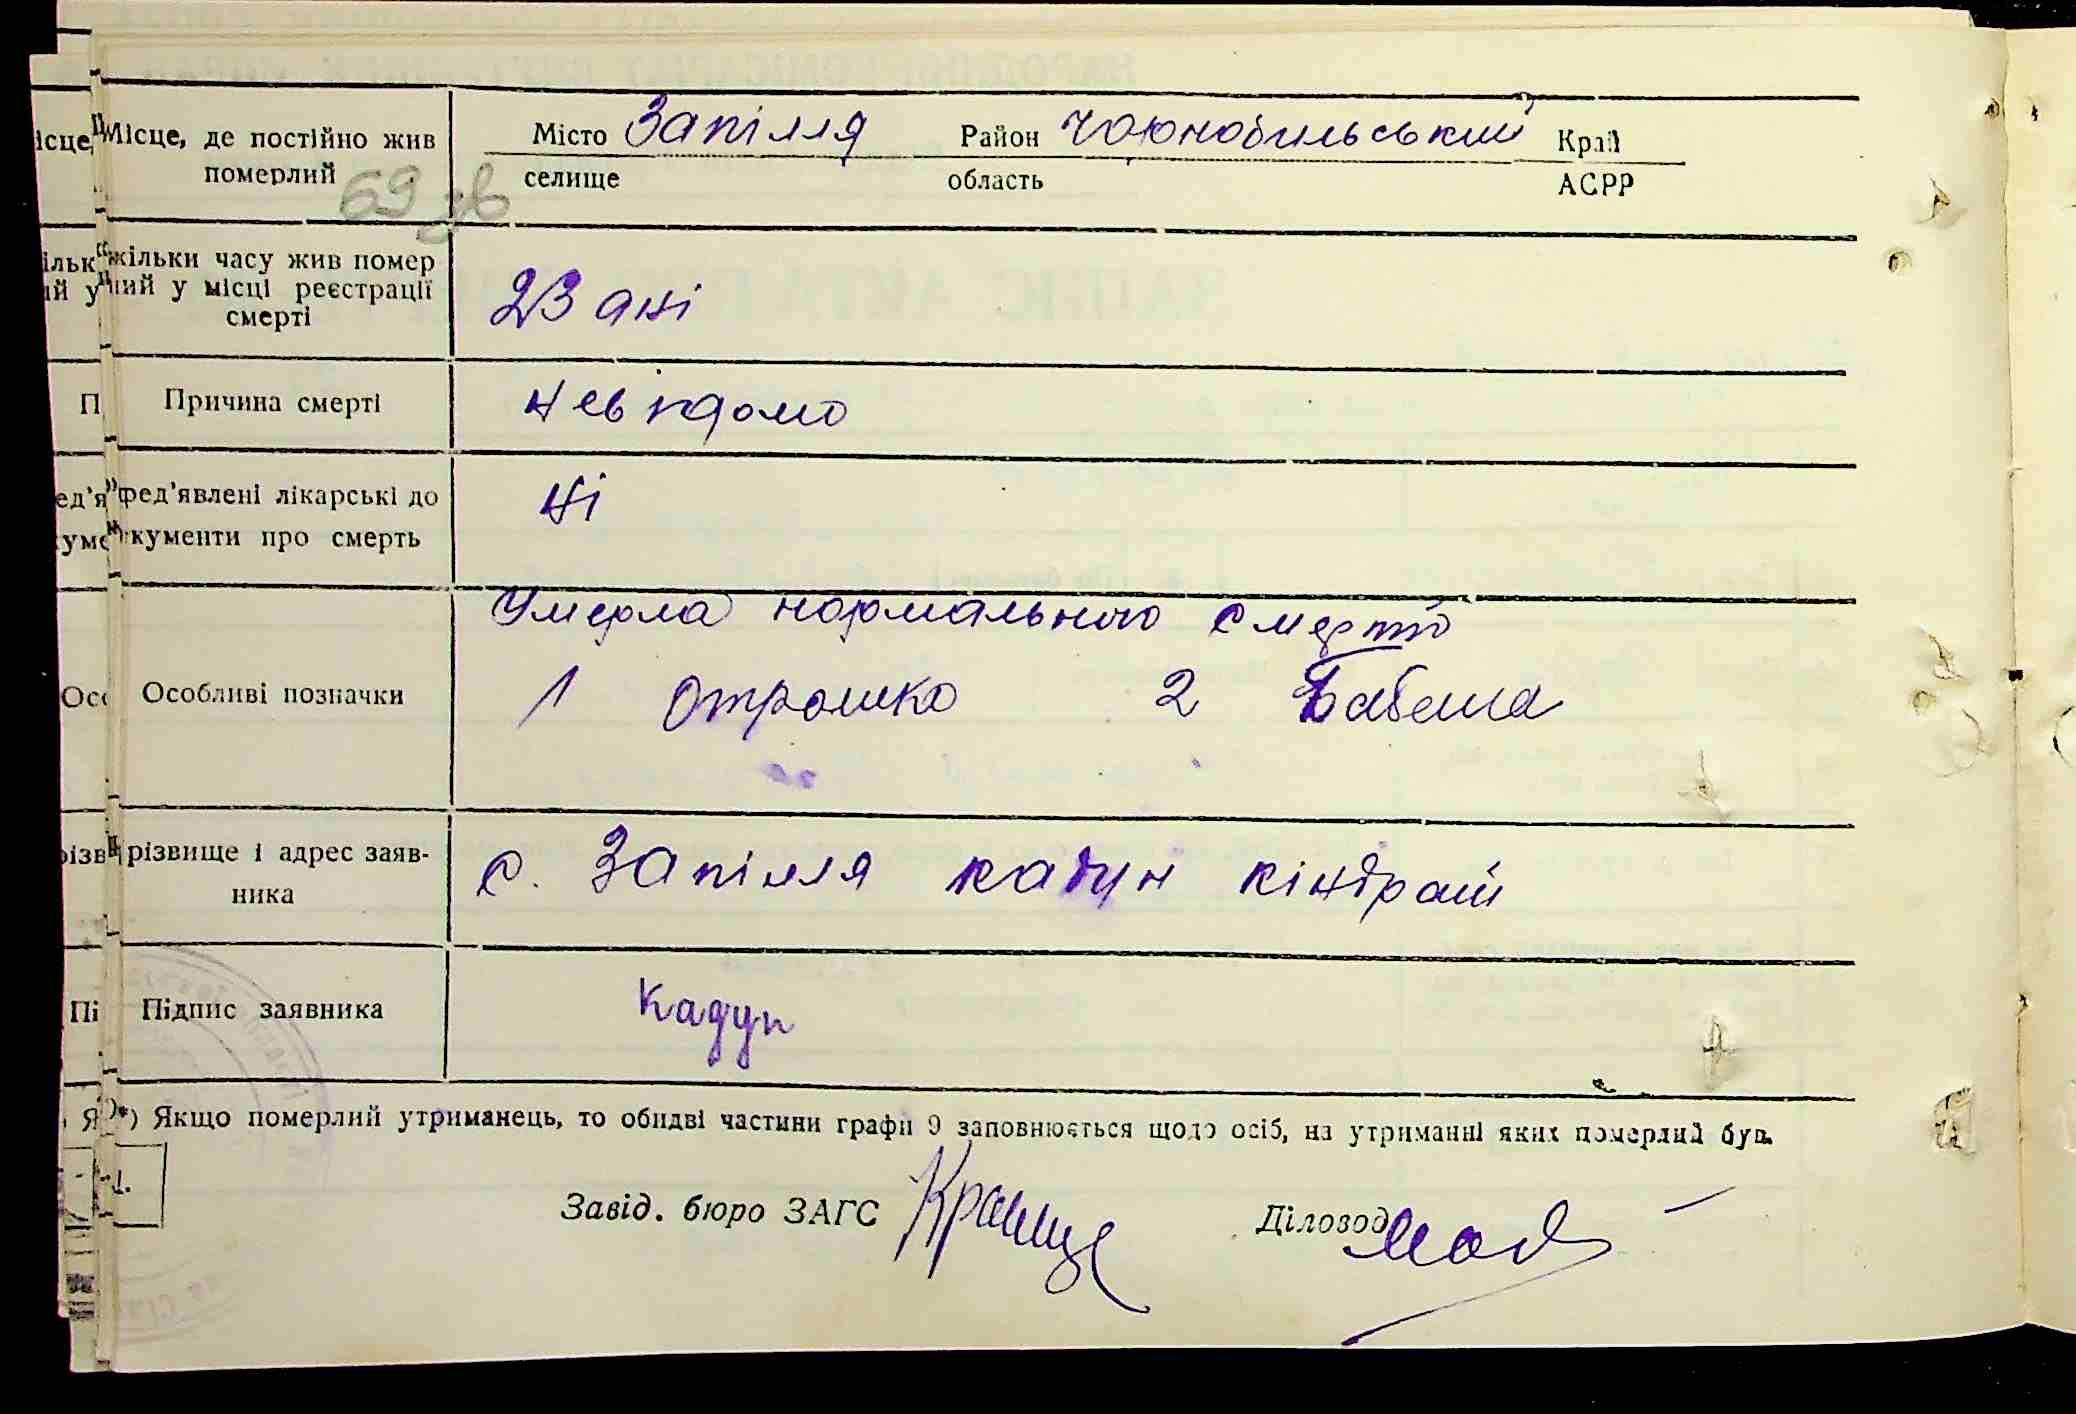 Місце, де постійно жив
померлий
Місто Запілля Район Чорнобильський Край
селище область АСРР
69 зв
Скільки часу жив помер
лий у місці реєстрації
смерті
23 дні
Причина смерті
невідомо
Пред'явлені лікарські до
кументи про смерть
Ні
Умерла нормальною смертю
Особливі позначки
1 Отрошко 2 Бабеша
різвище і адрес заяв-
ника
с. Запілля кадун кіндрат
Підпис заявника
Кадун
*) Якщо померлий утриманець, то обидві частини графи 9 заповнюється щодо осіб, на утриманні яких померлий був.
Завід. бюро ЗАГС
Діловод